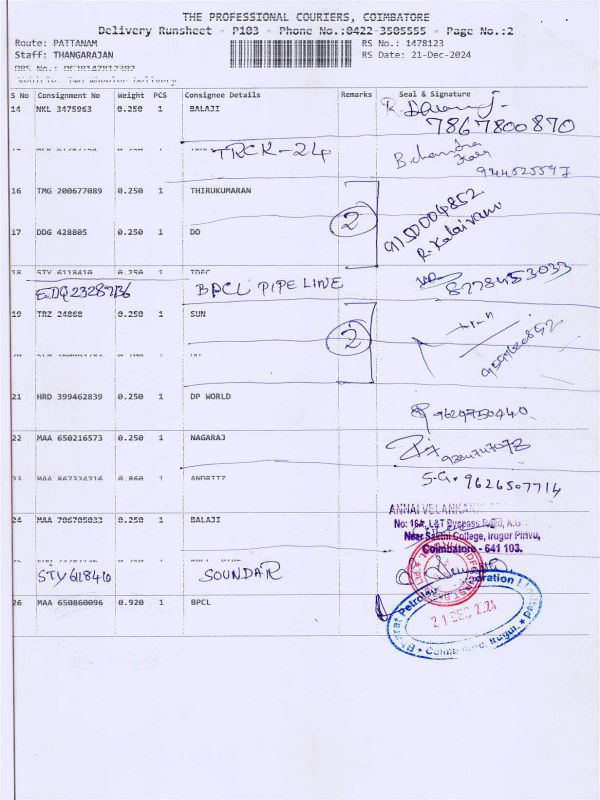 THE PROFESSIONAL COURIERS, COIMBATORE
Delivery Runsheet - P103 - Phone No.:0422-3505555 - Page No.:2
Route: PATTANAM RS No.: 1478123
Staff: THANGARAJAN RS Date: 21-Dec-2024
S No Consignment No Weight PCS Consignee Details Remarks Seal & Signature
14 NKL 3475963 0.250 1 BALAJI
7867800870
TRCK-24
16 TMG 200677089 0.250 1 THIRUKUMARAN
2 9150004852
17 DDG 428805 0.250 1 DO
18 STY 6118410 0.250 1 TDEC
EDQ23287136 BPCL PIPE LINE 8778453033
19 TRZ 24868 0.250 1 SUN
2
21 HRD 399462839 0.250 1 DP WORLD
9629750440
22 MAA 650216573 0.250 1 NAGARAJ
23 MAA 867324216 0.860 1 ANDRITZ
S.G. 9626507714
24 MAA 786785033 0.250 1 BALAJI
ANNAI VELANKANNI
No: 16A, L&T Bypass Road, A.G
Near Sakthi College, Irugur Pirivu,
Coimbatore - 641 103.
STY6118410 SOUNDAR
26 MAA 650860096 0.920 1 BPCL
Bharat Petroleum Corporation Limited
21 DEC 2024
Coimbatore, Irugur